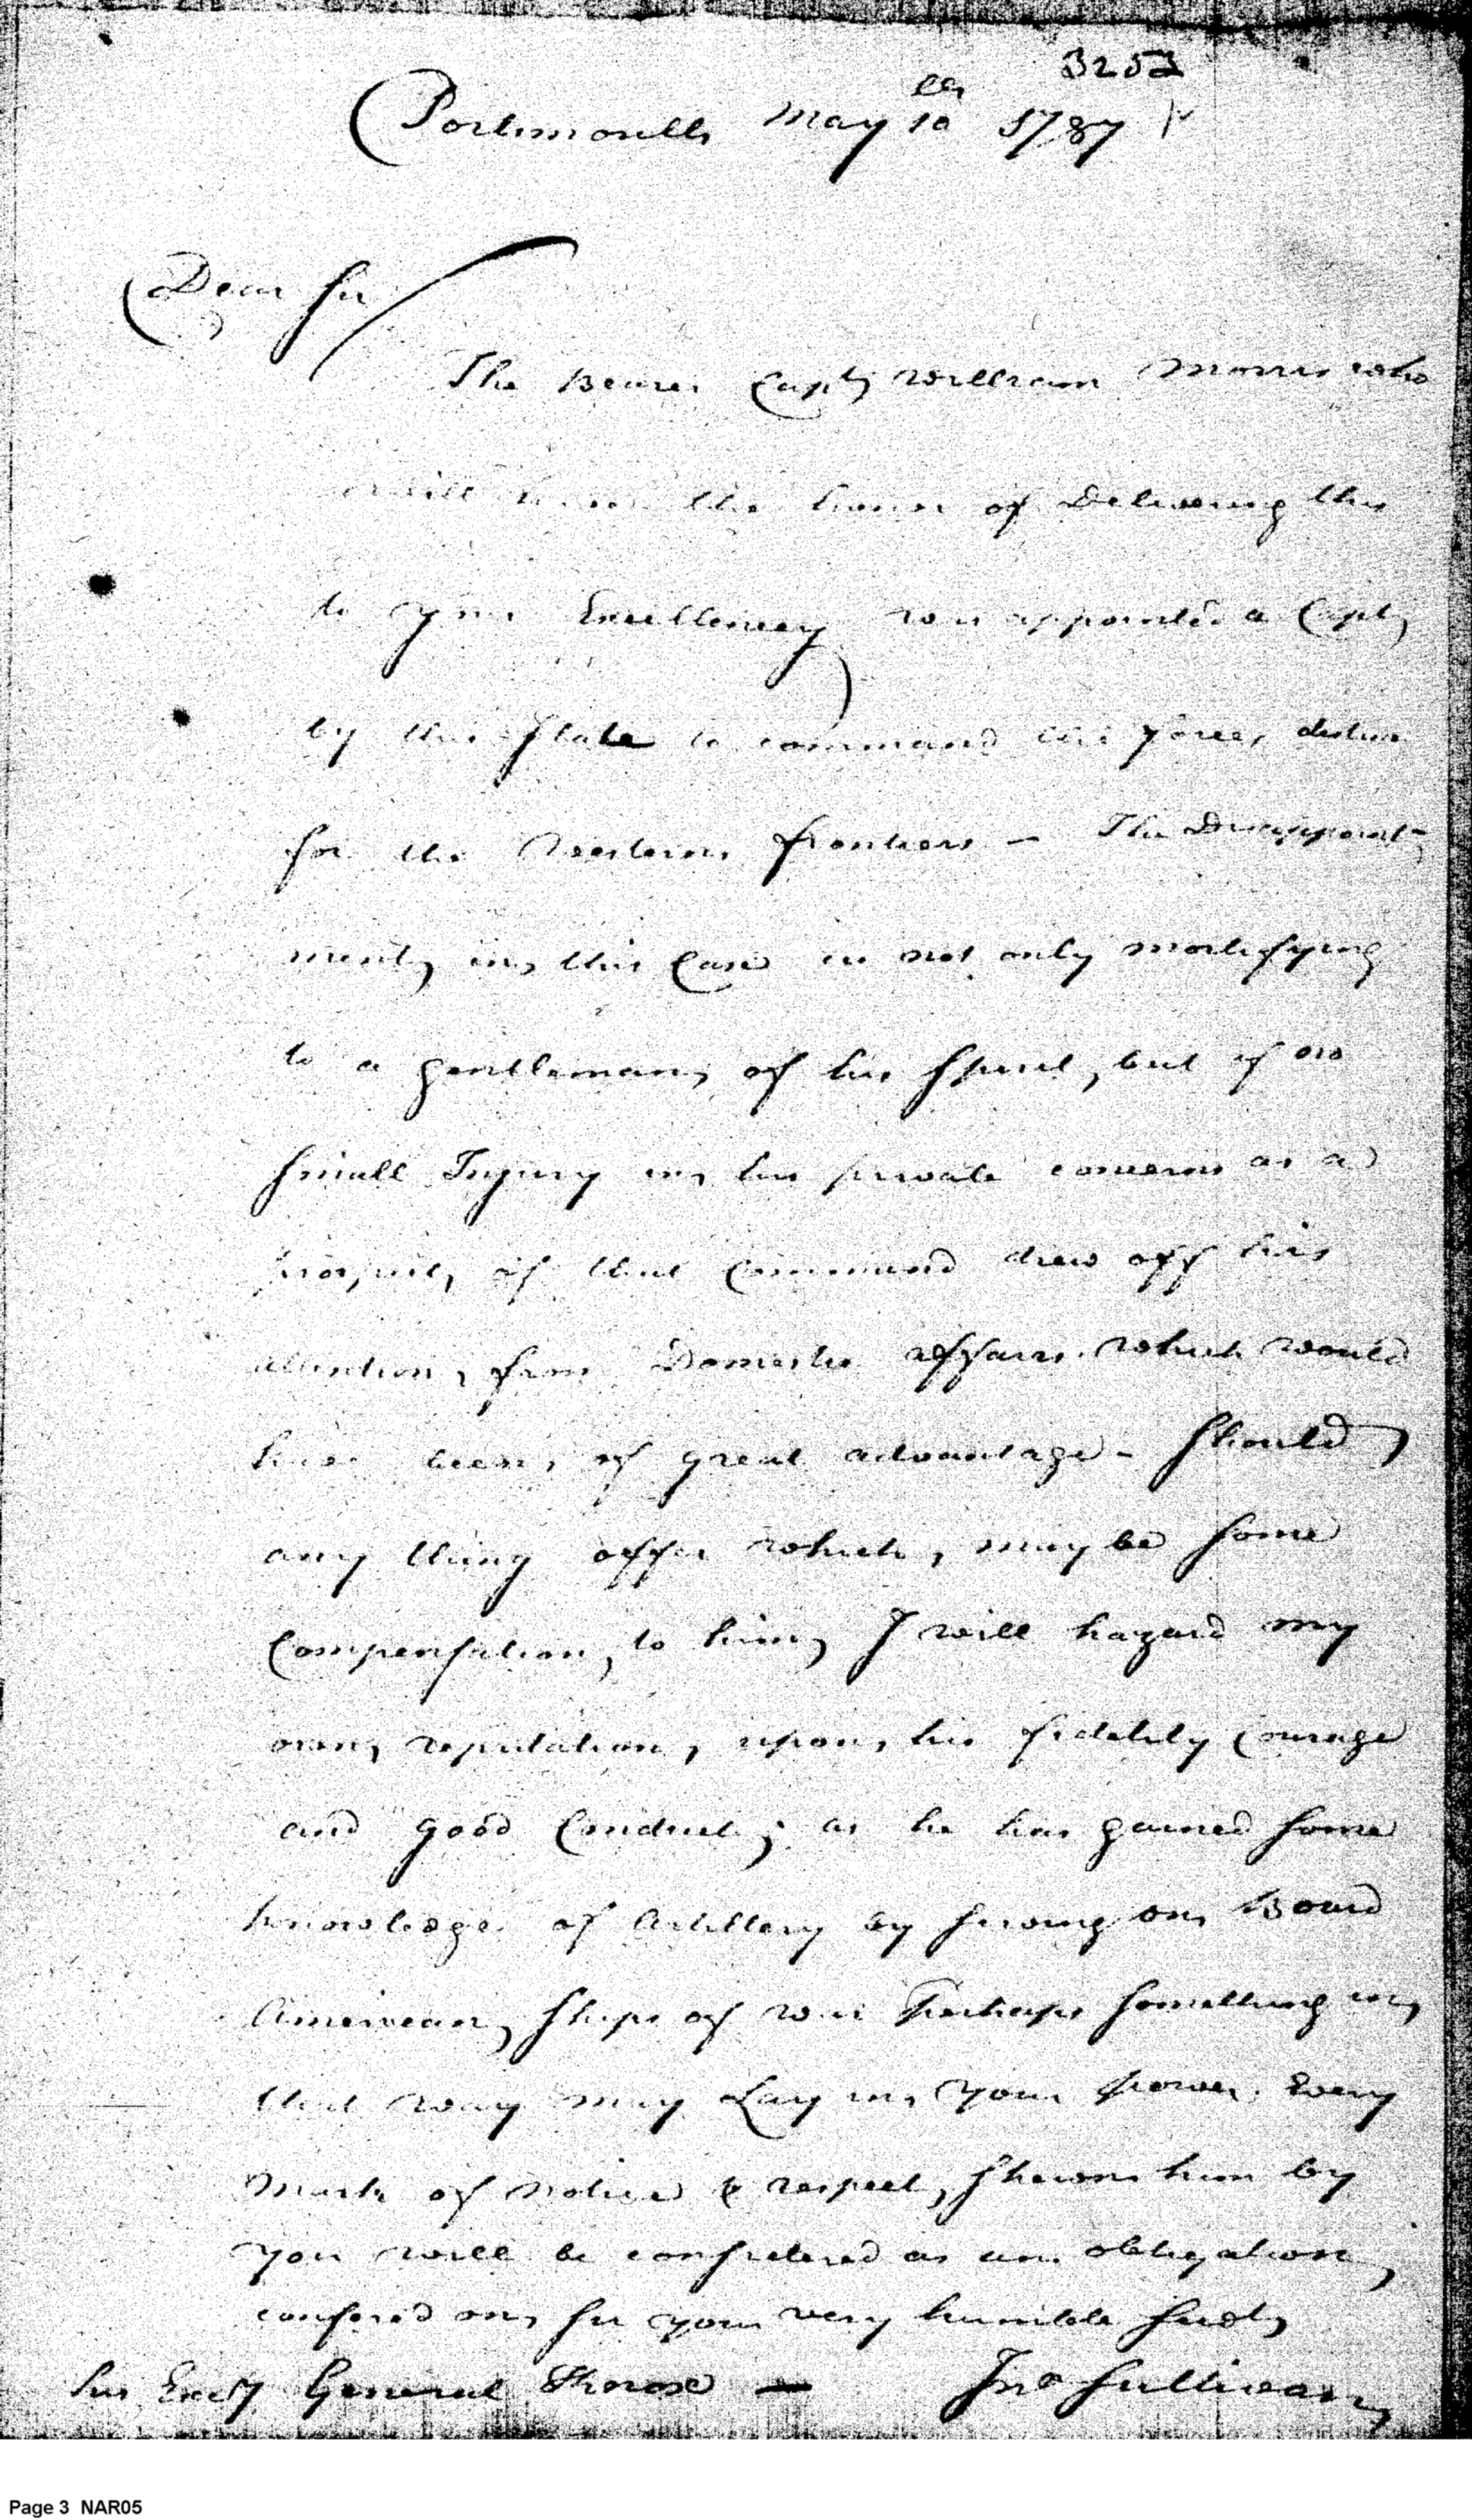 3253
Portsmouth May 10th 1787
Dear Sir
The Bearer Capt William Morris who
will have the honor of Delivering this
to your Excellency was appointed a Capt
by this State to command the forces destined
for the Western frontiers - The Disappoint-
ment in this Case is not only mortifying
to a gentleman of his Spirit, but of no
Small Injury in his private concerns as a
prospect of that Command drew off his
attention from Domestic affairs which would
have been of great advantage - Should
any thing offer which may be Some
Compensation to him I will hazard my
own reputation, upon his fidelity Courage
and good Conduct; as he has gained Some
knowledge of Artillery by Serving on Board
American Ships of war Perhaps Something in
that way may Lay in your power. Every
mark of notice & respect, Shewn him by
you will be considered as an obligation
confered on Sir your very humble Servt
his Excy General Knox — Jno Sullivan
Page 3 NAR05